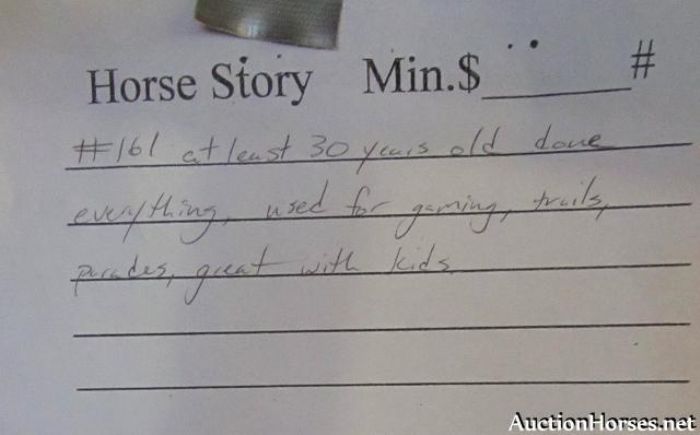 Horse Story Min.$______#
#161 at least 30 years old done
everything, used for gaming, trails,
parades, great with kids
AuctionHorses.net